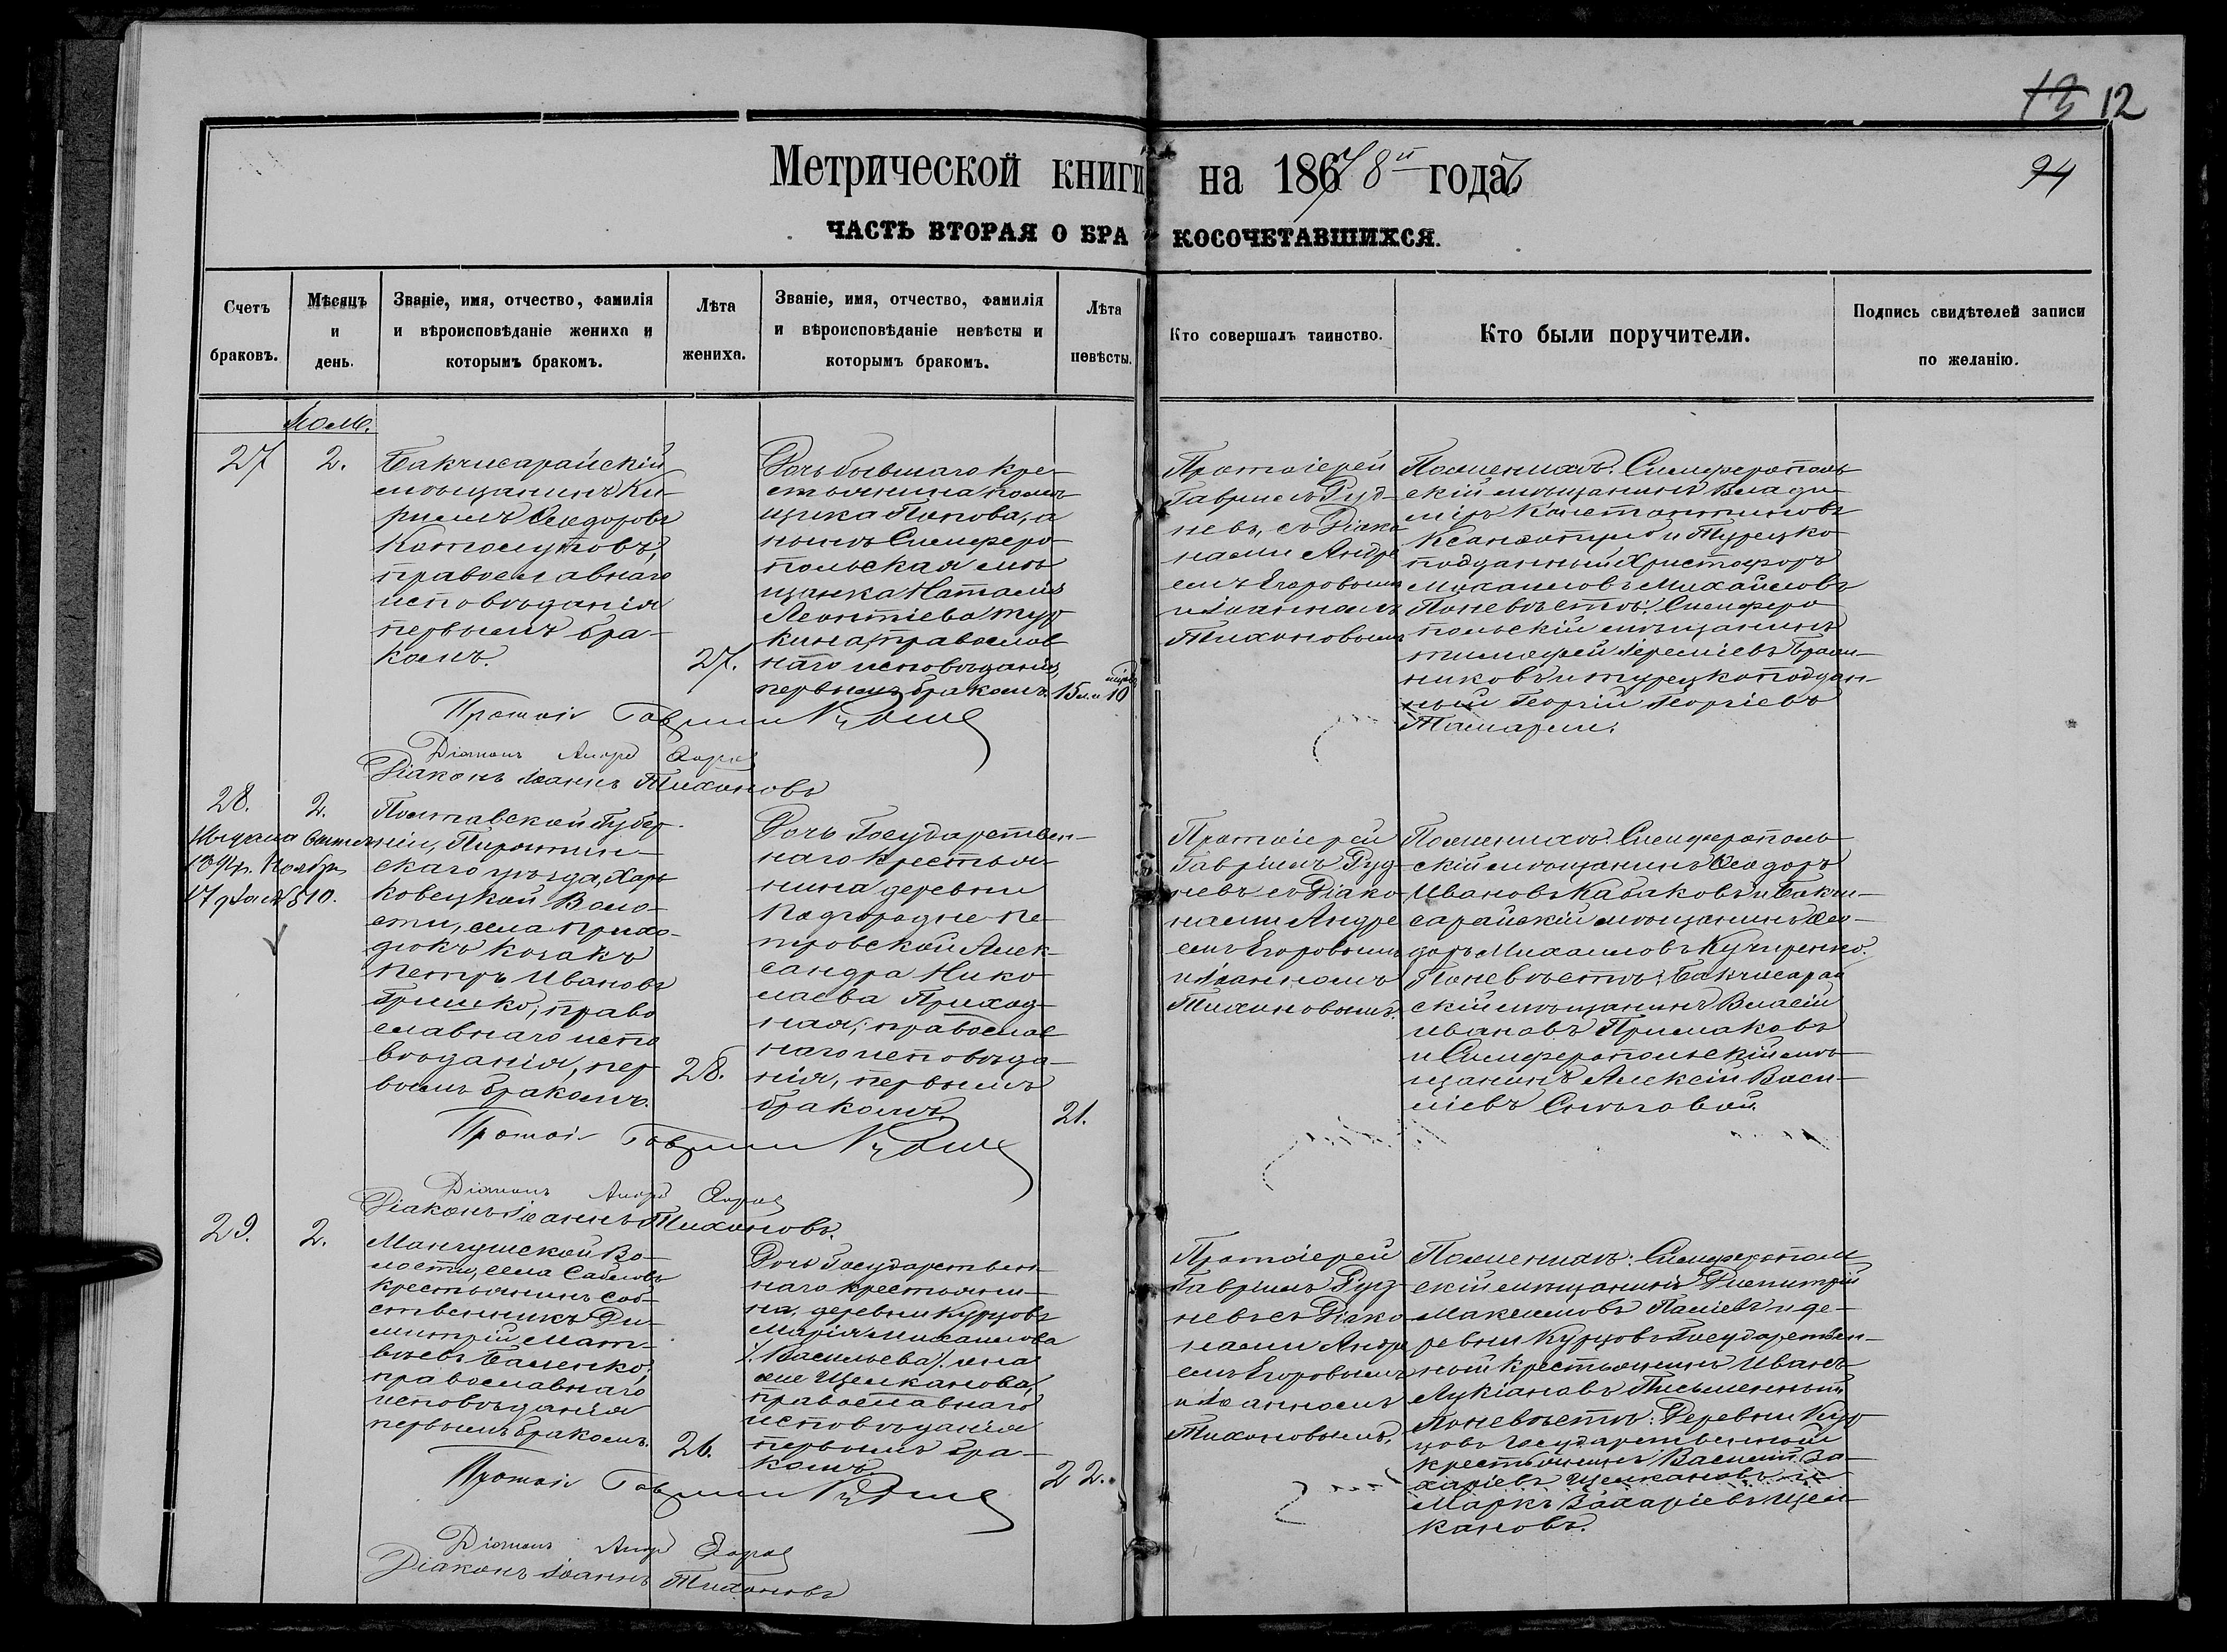 13 12
94
Метрической книги на 1868й года
ЧАСТЬ ВТОРАЯ О БРАКОСОЧЕТАВШИХСЯ.
Счетъ браковъ.
Мѣсяцъ и день.
Званіе, имя, отчество, фамилія
и вѣроисповѣданіе жениха и
которымъ бракомъ.
Лѣта
жениха.
Званіе, имя, отчество, фамилія
и вѣроисповѣданіе невѣсты и
которымъ бракомъ.
Лѣта
невѣсты.
Кто совершалъ таинство.
Кто были поручители.
Подпись свидѣтелей записи
по желанію.
27
2.
Бакчисарайскій
мѣщанинъ Ки-
риллъ Ѳеодоровъ
православнаго
исповѣданія
первымъ бра-
комъ.
27.
Дочь бывшаго кре-
стьянина помѣ-
щика Попова, а
нынѣ Симферо-
польская мѣ-
щанка Наталія
Леонтіева
кина, православ
наго исповѣданія,
первымъ бракомъ.
15 л. и 10
Протоіерей
Гавріилъ Руд-
невъ, съ Діако
нами Андре
емъ Егоровымъ
и Іоанномъ
Тихоновымъ
По женихѣ: Симферополь
скій мѣщанинъ Влади-
міръ Константиновъ
и Турецко
подданный Христофоръ
Михаиловъ Михайловъ
По невѣстѣ: Симферо
польскій мѣщанинъ
Тимофей Іереміевъ
никовъ и турецкоподдан-
ный Георгій Георгіевъ
Протоі Гавріилъ Рудневъ
Діаконъ Андрей Егоровъ
Діаконъ Іоаннъ Тихоновъ
28.
2.
Выдана
189 г. Ноября
17 дня № 510.
Полтавской Губер-
ніи, Пирятин-
скаго уѣзда, Харь
ковецкой Воло-
сти, села Прихо-
дюкъ козакъ
Петръ Ивановъ
Гришко, право
славнаго испо
вѣданія, пер
вымъ бракомъ.
28.
Дочь Государствен-
наго крестья-
нина деревни
Подгородне-Пе-
тровской Алек-
сандра Нико
лаева Приход-
ная, православ
наго исповѣда-
нія, первымъ
бракомъ.
21.
Протоіерей
Гавріилъ Руд-
невъ съ Діако-
нами Андре
емъ Егоровымъ
и Іоанномъ
Тихоновымъ.
По женихѣ: Симферополь
скій мѣщанинъ Ѳеодоръ
Ивановъ Кабаковъ и Бакчи-
сарайскій мѣщанинъ Ѳео-
доръ Михаиловъ Кучеренко.
По невѣстѣ: Бакчисарай
скій мѣщанинъ Власій
Ивановъ Примаковъ
и Симферопольскій мѣ-
щанинъ Алексій Васи-
ліевъ
Протоі Гавріилъ Рудневъ
Діаконъ Андрей Егоровъ
Діаконъ Іоаннъ Тихоновъ.
29.
2.
Мангушской Во-
лости, села Сабловъ
крестьянинъ соб-
ственникъ Ди-
митрій Мат-
вѣевъ
православнаго
исповѣданія
первымъ бракомъ.
26.
Дочь Государствен-
наго крестьяни-
на, деревни Курцовъ
Марія Михаилова
/:Васильева:/ она
же Щелканова,
православнаго
исповѣданія
первымъ бра-
комъ.
22.
Протоіерей
Гавріилъ Руд-
невъ съ Діако-
нами Андре
емъ Егоровымъ
и Іоанномъ
Тихоновымъ.
По женихѣ: Симферополь
скій мѣщанинъ Димитрій
Максимовъ и де-
ревни Курцовъ Государствен-
ный крестьянинъ Иванъ
Лукіановъ Письменный
По невѣстѣ: Деревни Кур
цовъ Государственный
крестьянинъ Василій За-
харіевъ Щелкановъ и
Маркъ Захаріевъ Щел-
кановъ.
Протоі Гавріилъ Рудневъ
Діаконъ Андрей Егоровъ
Діаконъ Іоаннъ Тихоновъ